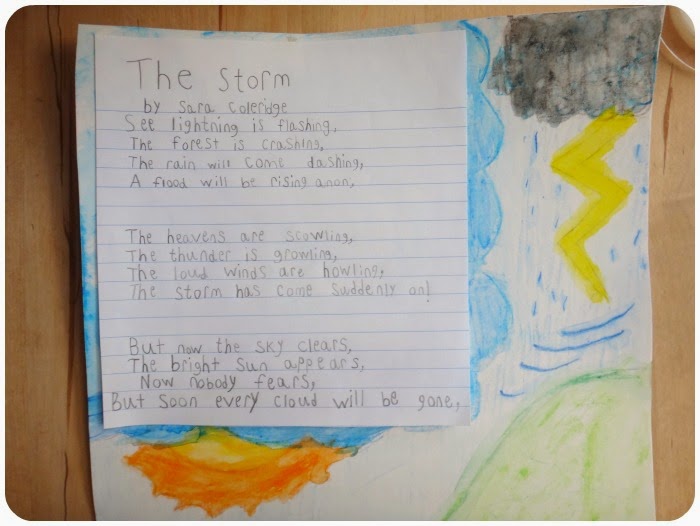 The Storm
by Sara Coleridge
See lightning is flashing,
The forest is crashing,
The rain will come dashing,
A flood will be rising anon,
The heavens are scowling,
The thunder is growling,
The loud winds are howling,
The storm has come suddenly on!
But now the sky clears,
The bright sun appears,
Now nobody fears,
But soon every cloud will be gone,